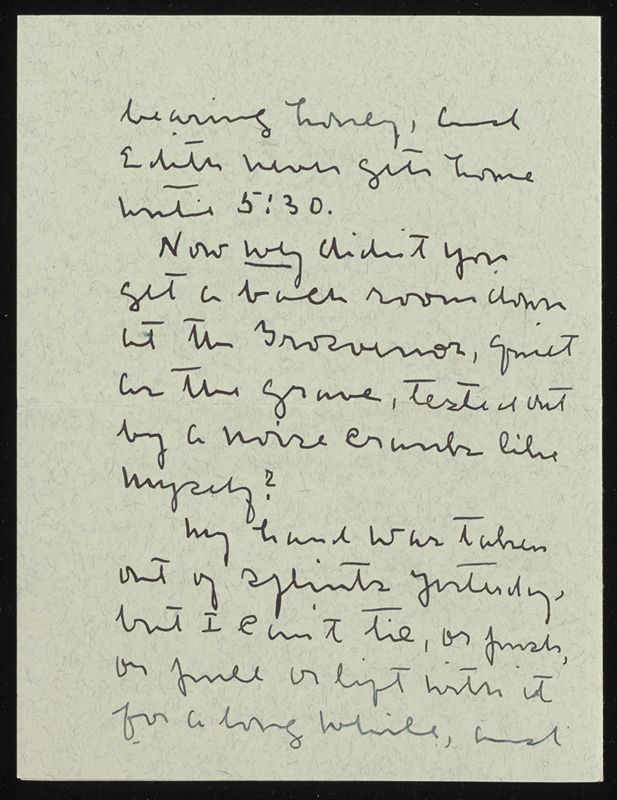 bearing honey, and
Edith never gets home
until 5:30.
Now why didn't you
get a back room down
at the Grosvenor, quiet
as the grave, tested out
by a noise crank like
myself?
My hand was taken
out of splints yesterday,
but I can't tie, or push,
or pull or lift with it
for a long while, and